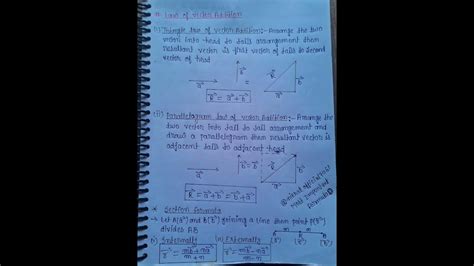 Law of vector Addition
(i) Triangle law of vector Addition:- Arrange the two
vector into head to tails arrangement then
resultant vector is first vector of tails to second
vector of head
a⃗
b⃗
R⃗
b⃗
a⃗
R⃗ = a⃗ + b⃗
(ii) Parallelogram law of vector Addition:- Arrange the
two vector into tail to tail arrangement and
draw a parallelogram then resultant vector is
adjacent tails to adjacent head
a⃗
R⃗
b⃗
a⃗
R⃗ = a⃗ + b⃗
Section formula
→ Let A(a⃗) and B(b⃗) joining a line then point
divides AB
m n
A R B
(i) Internally (ii) Externally
r⃗ = mb⃗ + na⃗ / m + n
r⃗ = mb⃗ - na⃗ / m - n